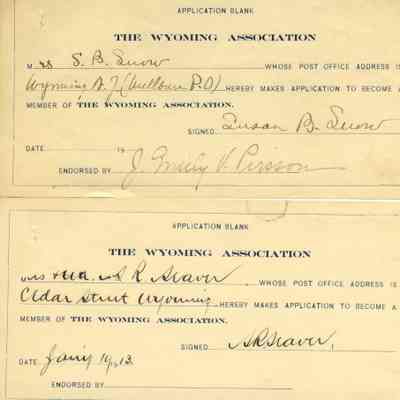 APPLICATION BLANK
THE WYOMING ASSOCIATION
Mrs S. B. Snow WHOSE POST OFFICE ADDRESS IS
Wyoming N. J. (Millburn P.O) HEREBY MAKES APPLICATION TO BECOME A
MEMBER OF THE WYOMING ASSOCIATION.
SIGNED Susan B. Snow
DATE 19
ENDORSED BY J. Emily V. Pierson
APPLICATION BLANK
THE WYOMING ASSOCIATION
S R Seaver WHOSE POST OFFICE ADDRESS IS
Cedar Street Wyoming HEREBY MAKES APPLICATION TO BECOME A
MEMBER OF THE WYOMING ASSOCIATION.
SIGNED S R Seaver,
DATE 1913
ENDORSED BY